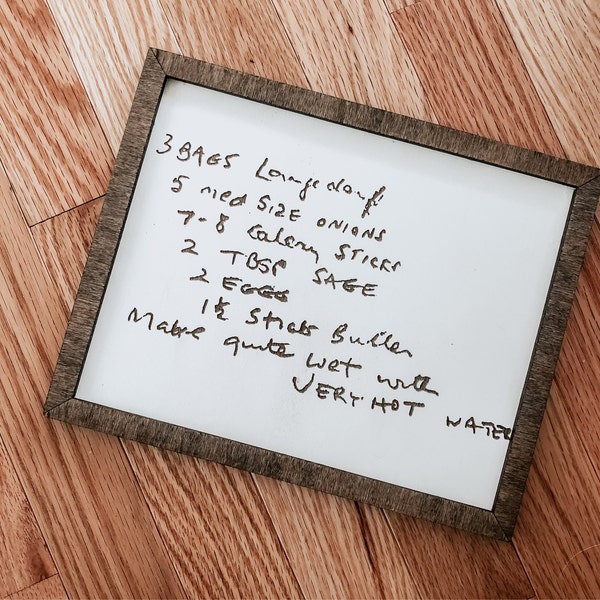 3 BAGS Large
5 med SIZE ONIONS
7-8 Celery STICKS
2 TBSP SAGE
2 EGGS
1½ Sticks Butter
Make quite wet with
VERY HOT WATER